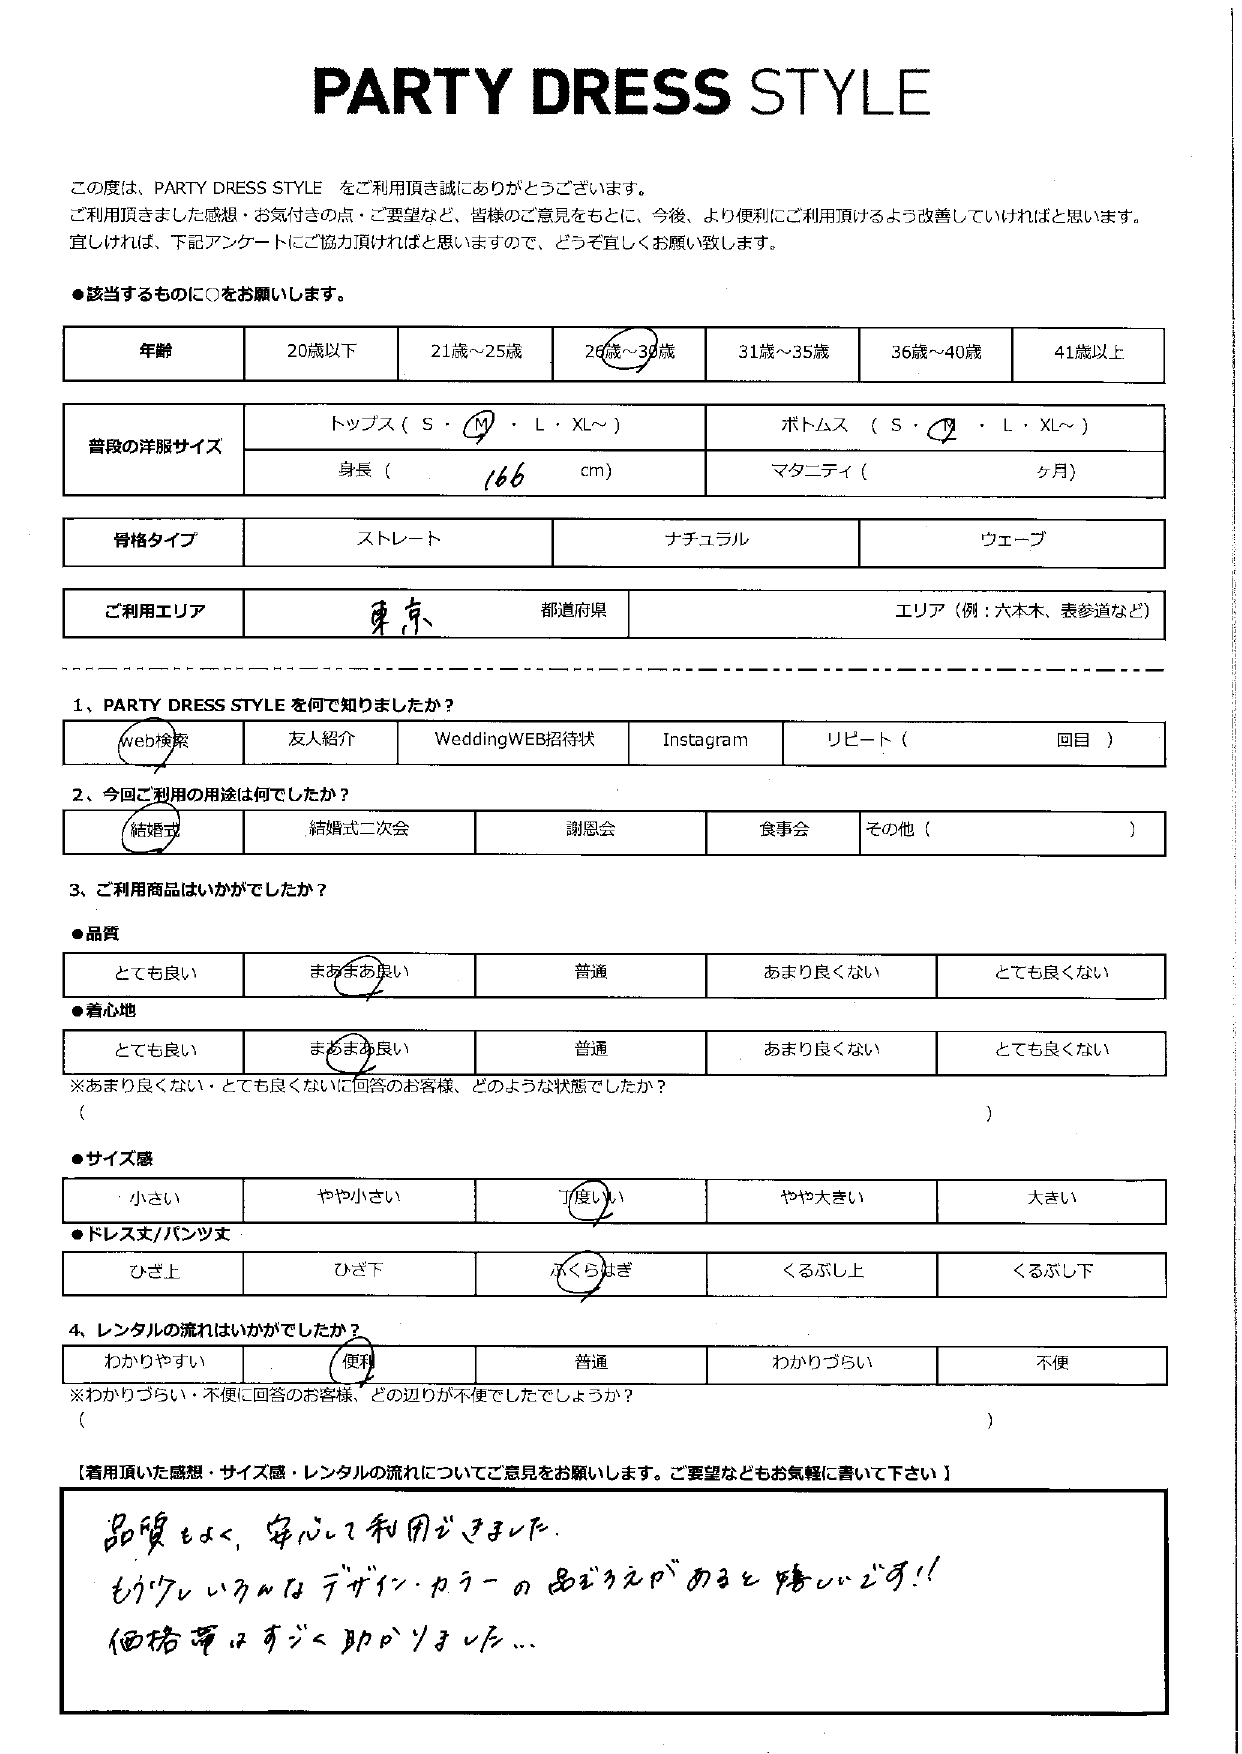 PARTY DRESS STYLE
この度は、PARTY DRESS STYLE　をご利用頂き誠にありがとうございます。
ご利用頂きました感想・お気付きの点・ご要望など、皆様のご意見をもとに、今後、より便利にご利用頂けるよう改善していければと思います。
宜しければ、下記アンケートにご協力頂ければと思いますので、どうぞ宜しくお願い致します。
●該当するものに○をお願いします。
年齢 20歳以下 21歳～25歳 26歳～30歳 31歳～35歳 36歳～40歳 41歳以上
普段の洋服サイズ トップス ( S ・ M ・ L ・ XL～ ) ボトムス ( S ・ M ・ L ・ XL～ )
身長 ( 166 cm) マタニティ ( ヶ月)
骨格タイプ ストレート ナチュラル ウェーブ
ご利用エリア 東京 都道府県 エリア（例：六本木、表参道など）
1、PARTY DRESS STYLE を何で知りましたか？
web検索 友人紹介 WeddingWEB招待状 Instagram リピート ( 回目 )
2、今回ご利用の用途は何でしたか？
結婚式 結婚式二次会 謝恩会 食事会 その他 ( )
3、ご利用商品はいかがでしたか？
●品質
とても良い まあまあ良い 普通 あまり良くない とても良くない
●着心地
とても良い まあまあ良い 普通 あまり良くない とても良くない
※あまり良くない・とても良くないに回答のお客様、どのような状態でしたか？
( )
●サイズ感
小さい やや小さい 丁度いい やや大きい 大きい
●ドレス丈/パンツ丈
ひざ上 ひざ下 ふくらはぎ くるぶし上 くるぶし下
4、レンタルの流れはいかがでしたか？
わかりやすい 便利 普通 わかりづらい 不便
※わかりづらい・不便に回答のお客様、どの辺りが不便でしたでしょうか？
( )
【着用頂いた感想・サイズ感・レンタルの流れについてご意見をお願いします。ご要望などもお気軽に書いて下さい】
品質もよく、安心して利用できました.
もう少しいろんなデザイン・カラーの品ぞろえがあると嬉しいです!!
価格帯はすごく助かりました...